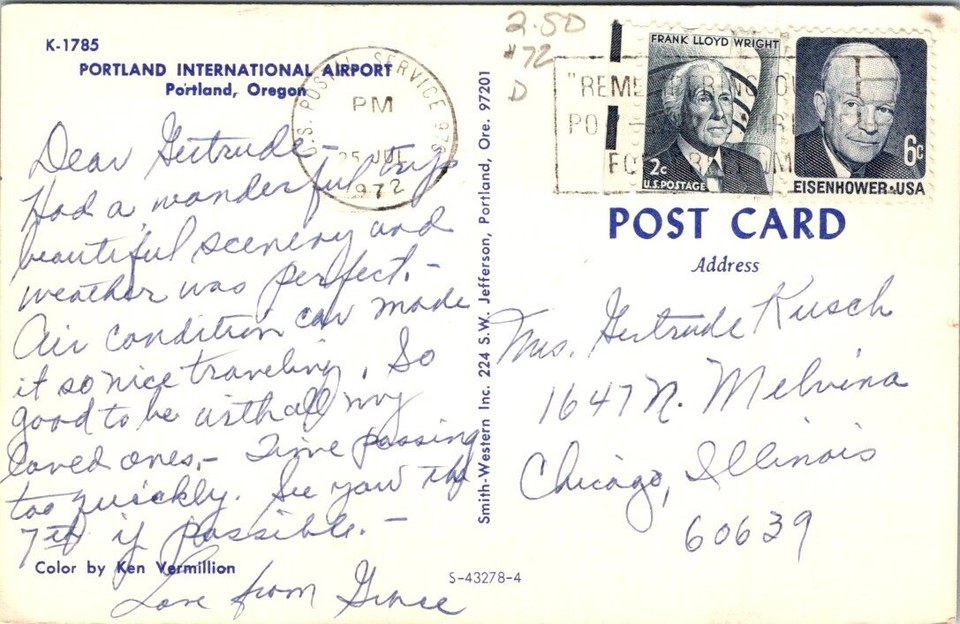 K-1785
PORTLAND INTERNATIONAL AIRPORT
Portland, Oregon
Dear Gertrude—
Had a wonderful trip
beautiful scenery and
weather was perfect.—
Air condition car made
it so nice traveling. So
good to be with all my
loved ones.— Time passing
too quickly. See you the
7th if possible.—
Love from Grace
Color by Ken Vermillion
U.S. POSTAL SERVICE
PM
25 JUL
1972
Smith-Western Inc. 224 S.W. Jefferson, Portland, Ore. 97201
S-43278-4
2.50
#72
D
FRANK LLOYD WRIGHT
2c
U.S. POSTAGE
6c
EISENHOWER·USA
POST CARD
Address
Mrs. Gertrude Kusch
1647 N. Melvina
Chicago, Illinois
60639